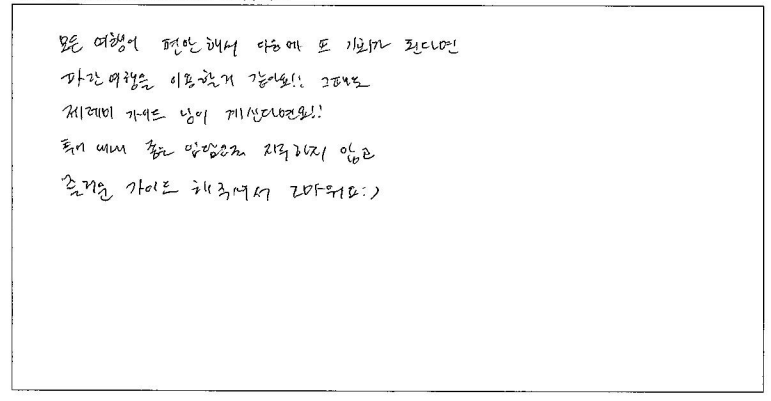 모든 여행이 편안해서 다음에 또 기회가 된다면
파란여행을 이용할거 같아요!! 그때도
제레미 가이드 님이 계신다면요!!
투어 내내 좋은 입담으로 지루하지 않고
즐거운 가이드 해주셔서 고마워요:)